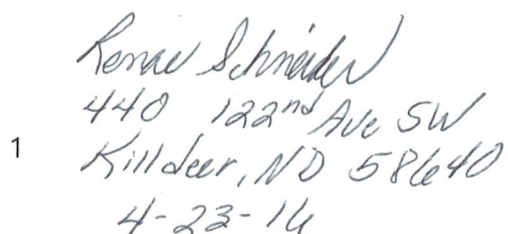 Renae Schneider
440 122nd Ave SW
1 Killdeer, ND 58640
4-23-16